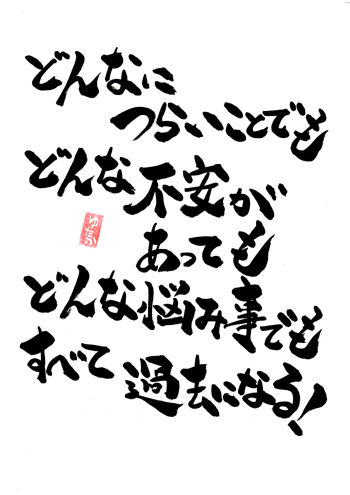 どんなに
つらいことでも
どんな不安が
あっても
どんな悩み事でも
すべて過去になる!
ゆたか